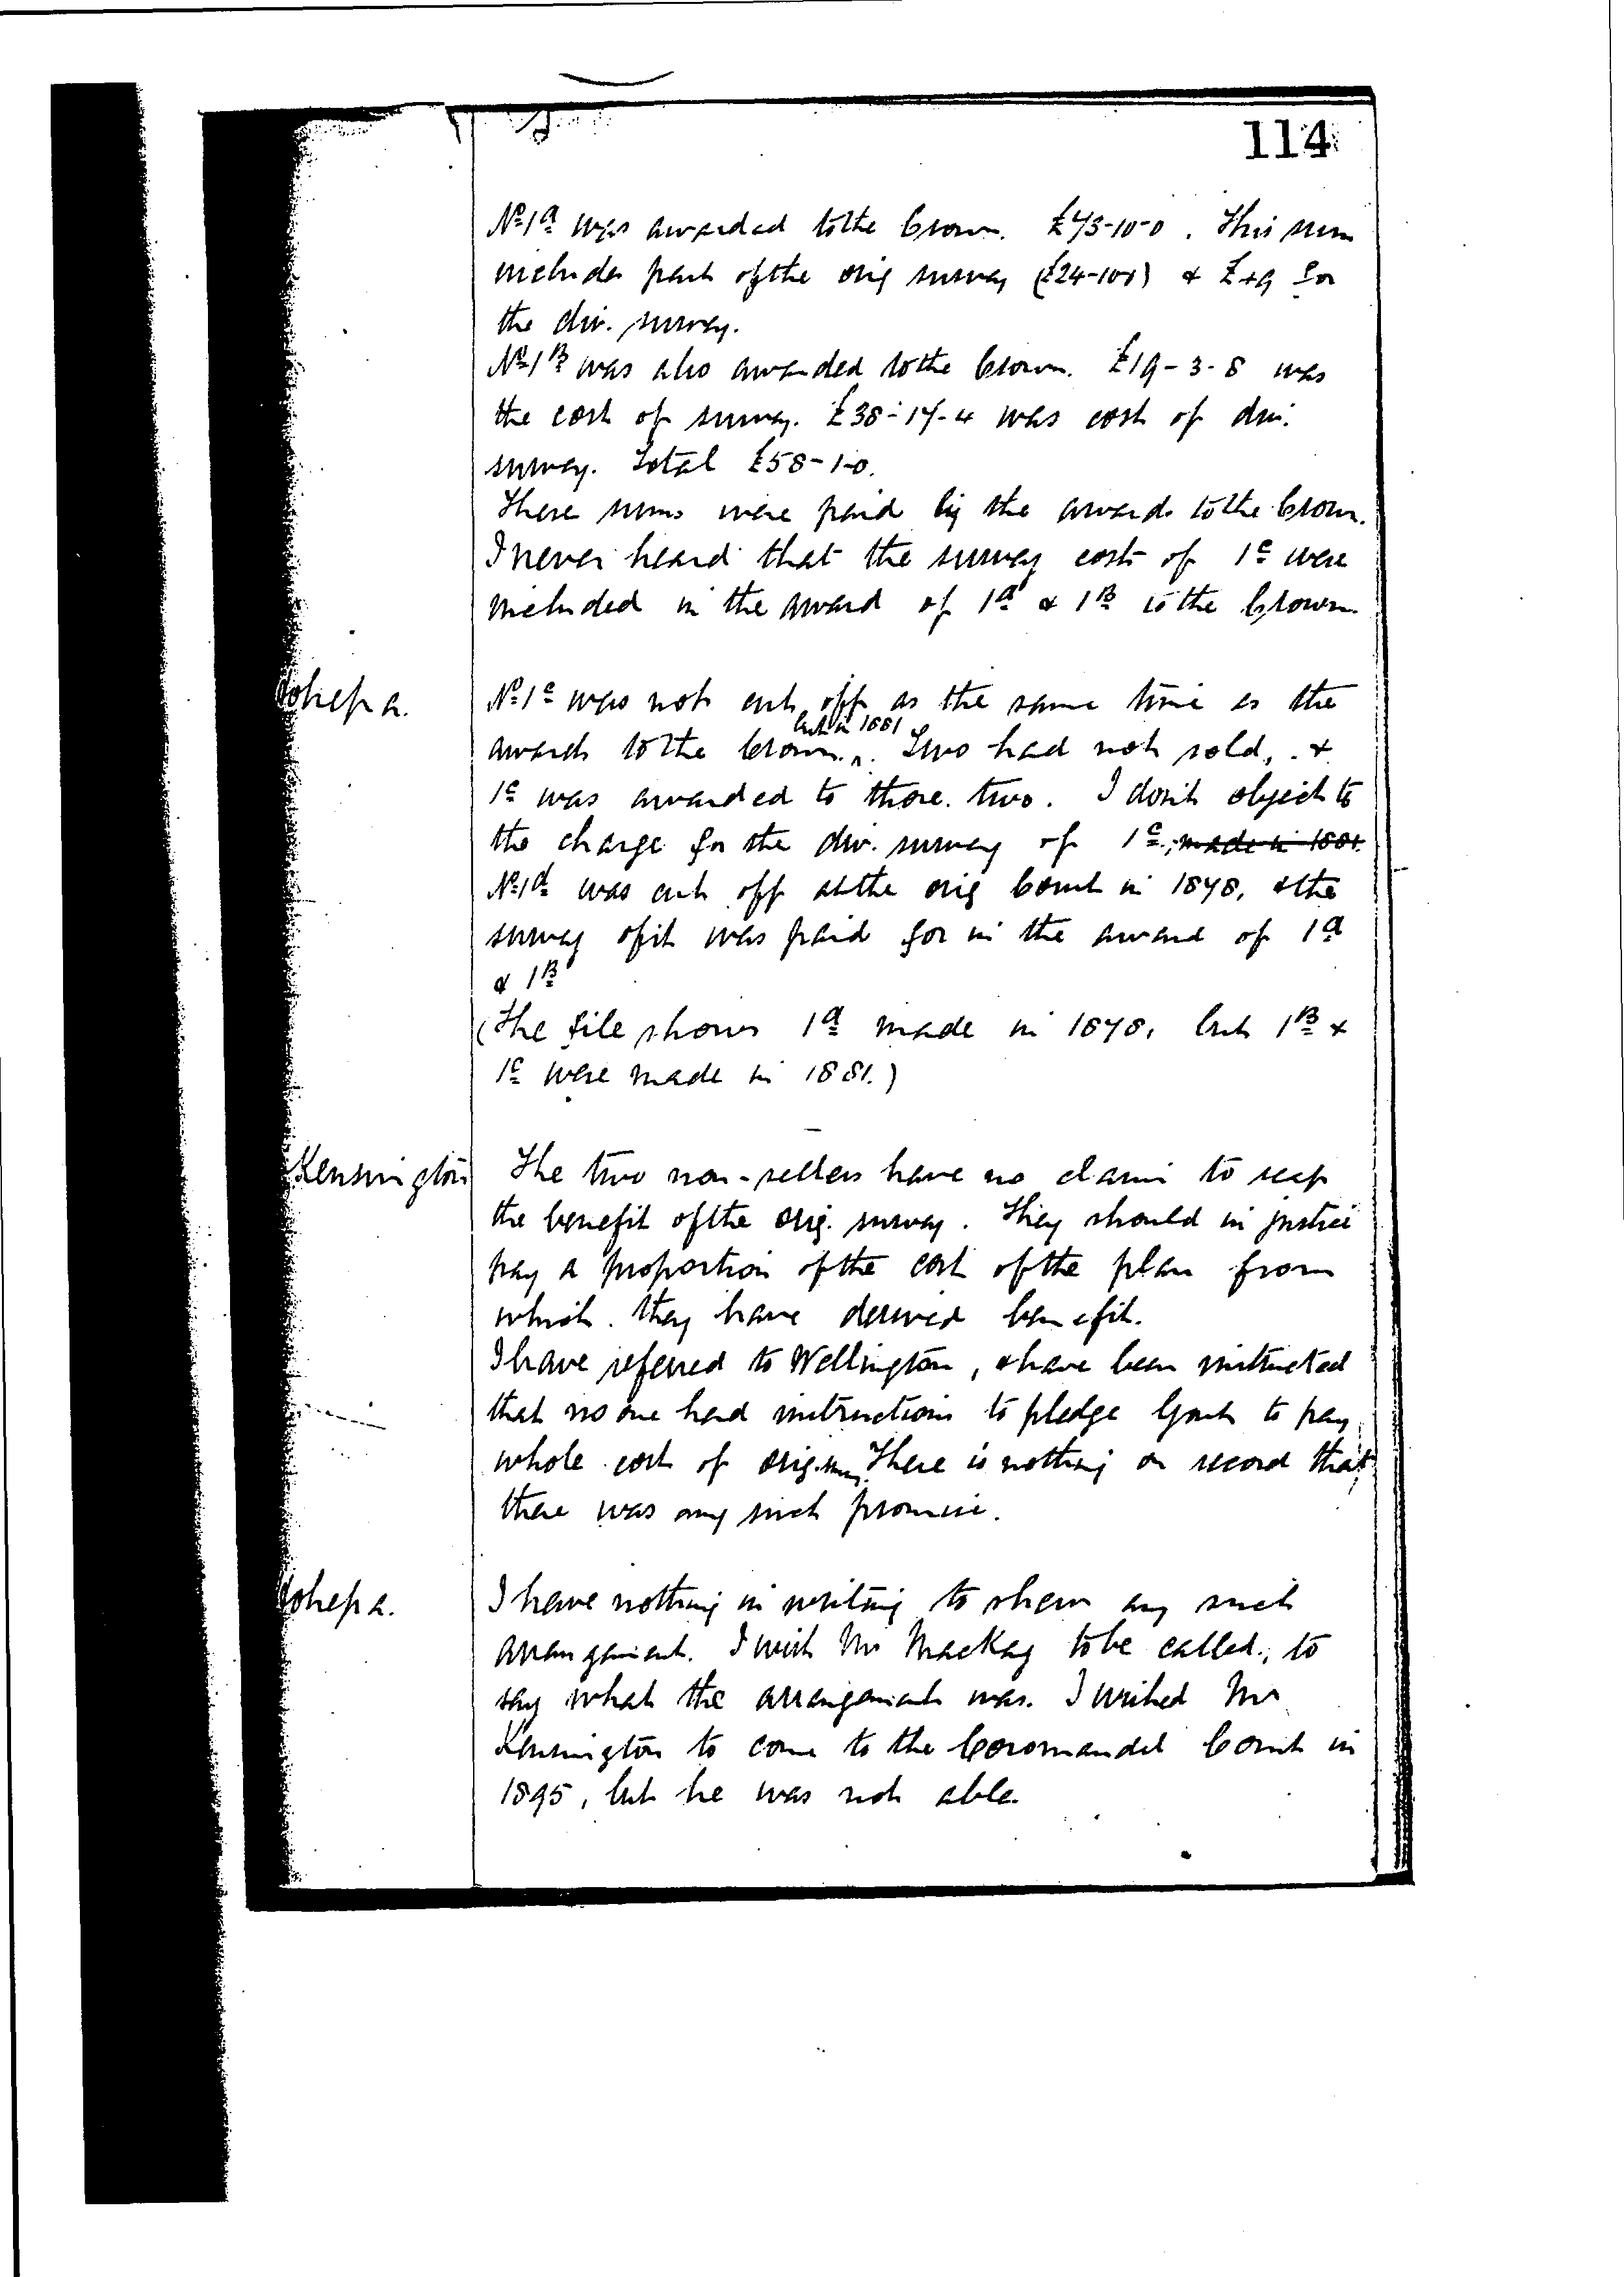 114
No 1A was awarded to the Crown. £73-10-0. This sum
includes part of the orig survey (£24-10-0) & £49 for
the div. survey.
No 1B was also awarded to the Crown. £19-3-8 was
the cost of survey. £38-17-4 was cost of div.
survey. Total £58-1-0.
These sums were paid by the awards to the Crown.
I never heard that the survey costs of 1C were
included in the award of 1A & 1B to the Crown.
Hohepa. No 1C was not cut off at the same time as the
awards to the Crown, but in 1881. Two had not sold, &
1C was awarded to those two. I don't object to
the charge for the div. survey of 1C, made in 1881.
No 1A was cut off at the orig Court in 1878, & the
survey of it was paid for in the award of 1A
& 1B
(The file shows 1A made in 1878, but 1B &
1C were made in 1881.)
Kensington The two non-sellers have no claim to reap
the benefit of the orig. survey. They should in justice
pay a proportion of the cost of the plan from
which they have derived benefit.
I have referred to Wellington, & have been instructed
that no one had instructions to pledge Govt to pay
whole cost of orig. survey. There is nothing on record that
there was any such promise.
Hohepa. I have nothing in writing to shew any such
arrangement. I wish Mr Mackay to be called, to
say what the arrangement was. I wished Mr
Kensington to come to the Coromandel Court in
1895, but he was not able.